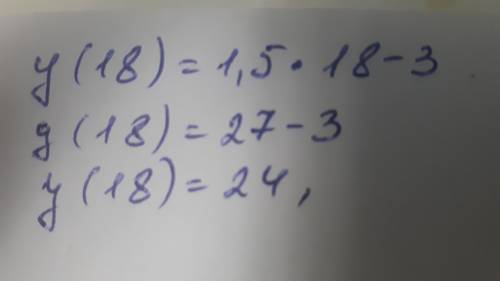 y(18)=1,5·18-3
y(18)=27-3
y(18)=24,